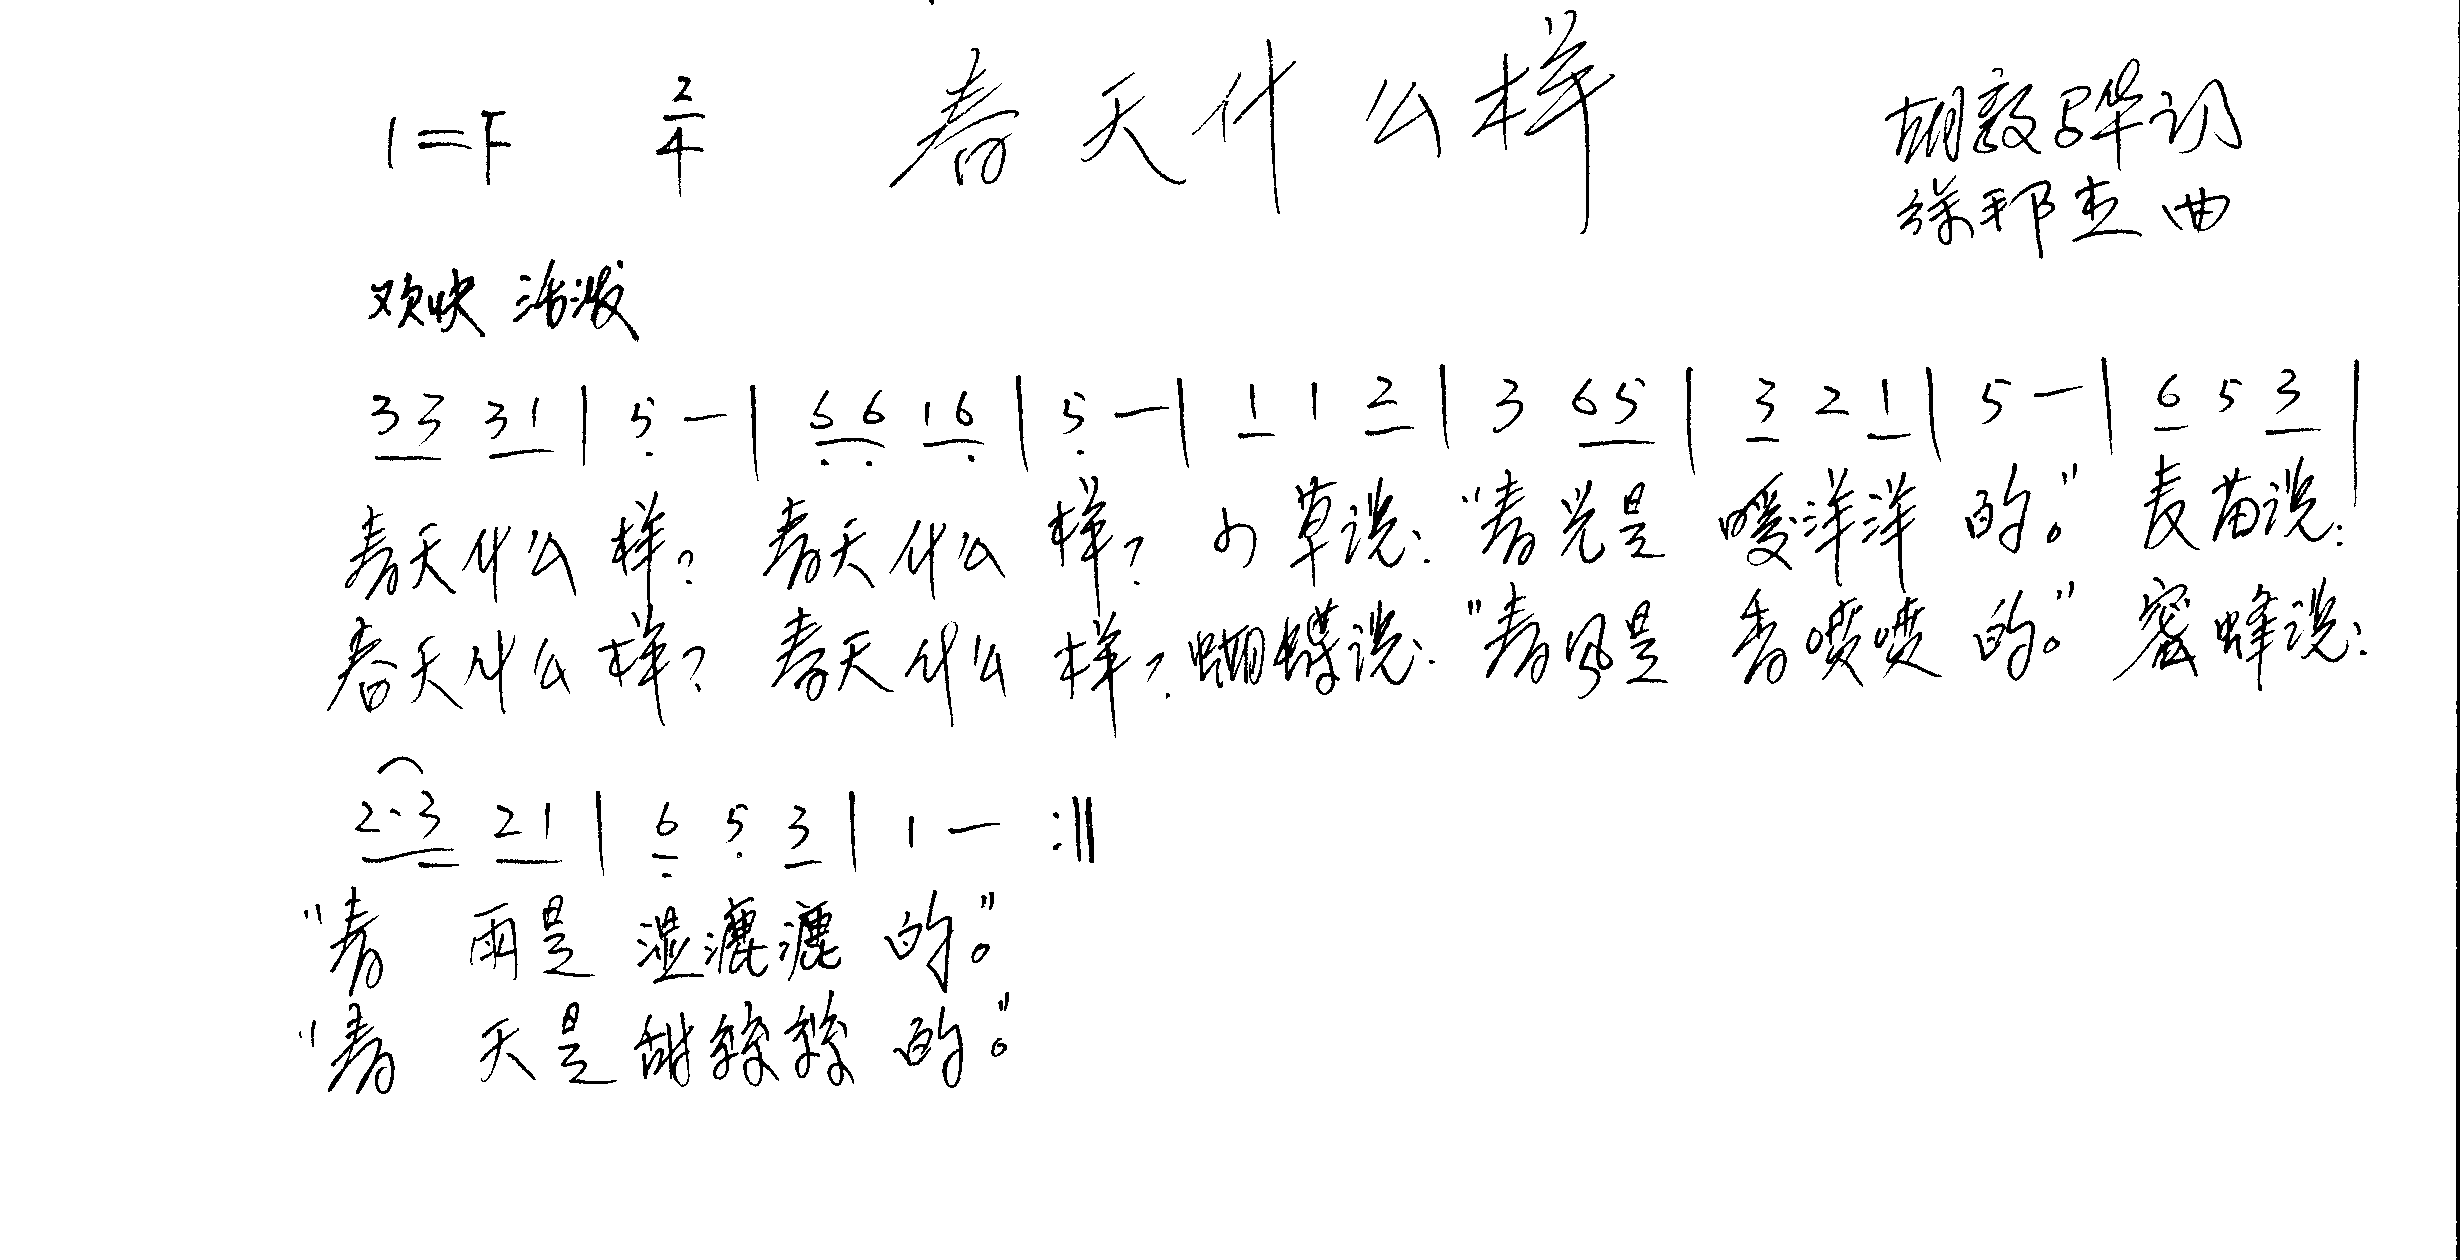 1=F 2/4 春天什么样 胡敦骅词
徐邦杰曲
欢快 活泼
33 31 | 5 — | 66 16 | 5 — | 1 1 2 | 3 65 | 3 2 1 | 5 — | 6 5 3 |
春天什么样? 春天什么样? 小草说:“春光是 暖洋洋 的。” 麦苗说:
春天什么样? 春天什么样? 蝴蝶说:“春风是 香喷喷 的。” 蜜蜂说:
2·3 21 | 6 5 3 | 1 — :||
“春 雨是 湿漉漉 的。”
“春 天是 甜絲絲 的。”